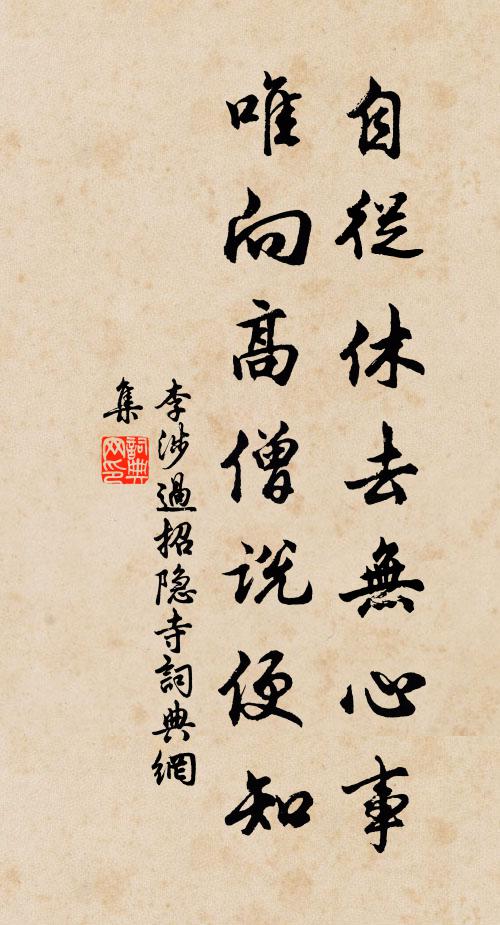 自從休去無心事
唯向高僧說便知
李涉過招隐寺詞典網
集
詞典
网印